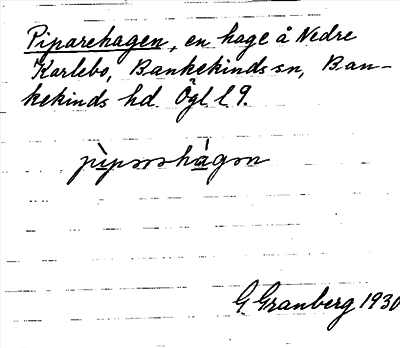 Piparehagen, en hage å Nedre
Karlebo, Bankekinds sn, Ban-
kekinds hd. Ögl. l. 9.
G. Granberg 1930